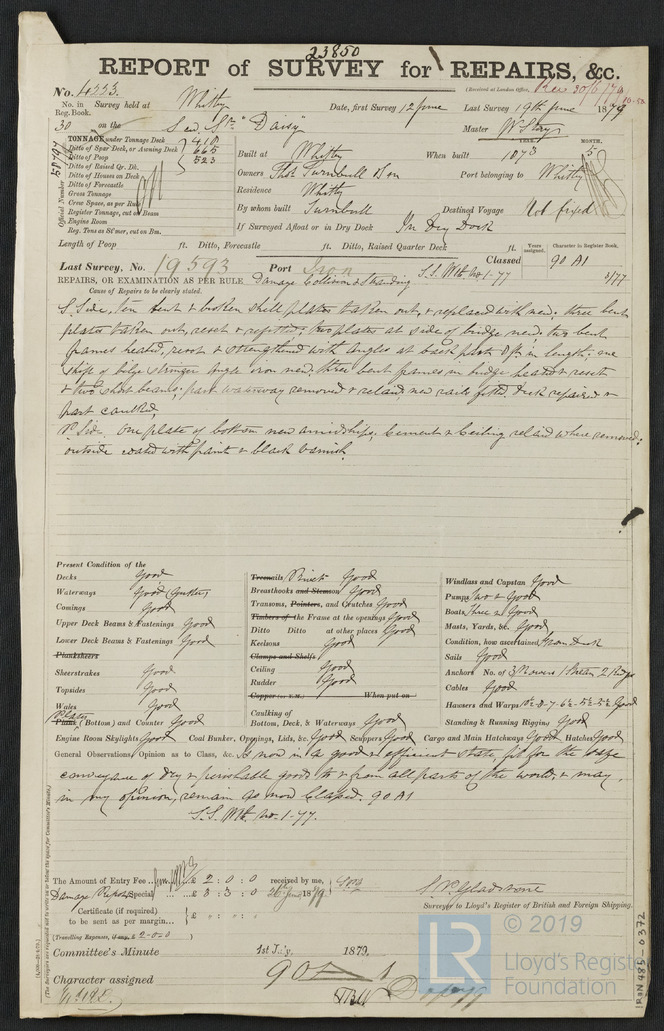 23850
REPORT of SURVEY for REPAIRS, &c.
(Received at London Office, Rec 30/6/79
No. 4553.
No. in Survey held at Whitby Date, first Survey 12 June Last Survey 19th June 1879
Reg. Book.
30 on the Screw Str "Daisy" Master W Story
TONNAGE under Tonnage Deck 410
Ditto of Spar Deck, or Awning Deck 665
Ditto of Poop 523
Ditto of Raised Qr. Dk.
Ditto of Houses on Deck
Ditto of Forecastle
Gross Tonnage
Crew Space, as per Rule
Register Tonnage, cut on Beam
Engine Room
Reg. Tons as St'mer, cut on Bm.
Official Number
YEAR. MONTH.
Built at Whitby When built 1873 5
Owners Thos Turnbull & Son Port belonging to Whitby
Residence Whitby
By whom built Turnbull Destined Voyage Not fixed
If Surveyed Afloat or in Dry Dock In Dry Dock
Length of Poop ft. Ditto, Forecastle ft. Ditto, Raised Quarter Deck ft.
Years assigned. Character in Register Book.
Last Survey, No. 19593 Port Iron Classed 90 A1
S.S. Wtb. No. 1-77 3/77
REPAIRS, OR EXAMINATION AS PER RULE Damage Collision & Stranding
Cause of Repairs to be clearly stated.
S. Side, ten bent & broken shell plates taken out, & replaced with new; three bent
plates taken out, reset & refitted; two plates at side of bridge new, two bent
frames heated, reset & strengthened with angles at back part 8 ft in length; one
strip of bilge stringer angle iron new, three bent frames in bridge heated & reset
& two short beams; part waterway removed & relaid, new rails fitted, Deck repaired &
part caulked.
P. Side, One plate of bottom new amidships; Cement & Ceiling relaid where removed;
outside coated with paint & black varnish.
Present Condition of the
Decks Good
Waterways Good (Gutter)
Comings Good
Upper Deck Beams & Fastenings Good
Lower Deck Beams & Fastenings Good
Planksheers
Sheerstrakes Good
Topsides Good
Wales Good
Plates
Plank (Bottom) and Counter Good
Treenails Rivets Good
Breasthooks and Stemson Good
Transoms, Pointers, and Crutches Good
Timbers of the Frame at the openings Good
Ditto Ditto at other places Good
Keelsons Good
Clamps and Shelfs
Ceiling Good
Rudder Good
Copper (or Y.M.) When put on
Caulking of
Bottom, Deck, & Waterways Good
Windlass and Capstan Good
Pumps Two & Good
Boats Three & Good
Masts, Yards, &c. Good
Condition, how ascertained, from Deck
Sails Good
Anchors No. of 3 Bowers 1 Stream 2 Kedges
Cables Good
Hawsers and Warps Good
Standing & Running Rigging Good
Engine Room Skylights Good Coal Bunker, Openings, Lids, &c. Good Scuppers Good Cargo and Main Hatchways Good Hatches Good
General Observations, Opinion as to Class, &c. Is now in a good & efficient state, fit for the safe
conveyance of dry & perishable goods to & from all parts of the world, & may,
in my opinion, remain as now Classed. 90 A1
S.S. Wtb. No. 1-77.
The Amount of Entry Fee £ 2 : 0 : 0 received by me,
Damage Report Special £ 3 : 3 : 0 26th June 1879
Certificate (if required) £ " : " : "
to be sent as per margin
(Travelling Expenses, if any, £ 2-0-0)
Surveyor to Lloyd's Register of British and Foreign Shipping.
Committee's Minute 1st July 1879.
Character assigned 90 A 1
IRON 485-0372
LR
© 2019
Lloyd's Register
Foundation